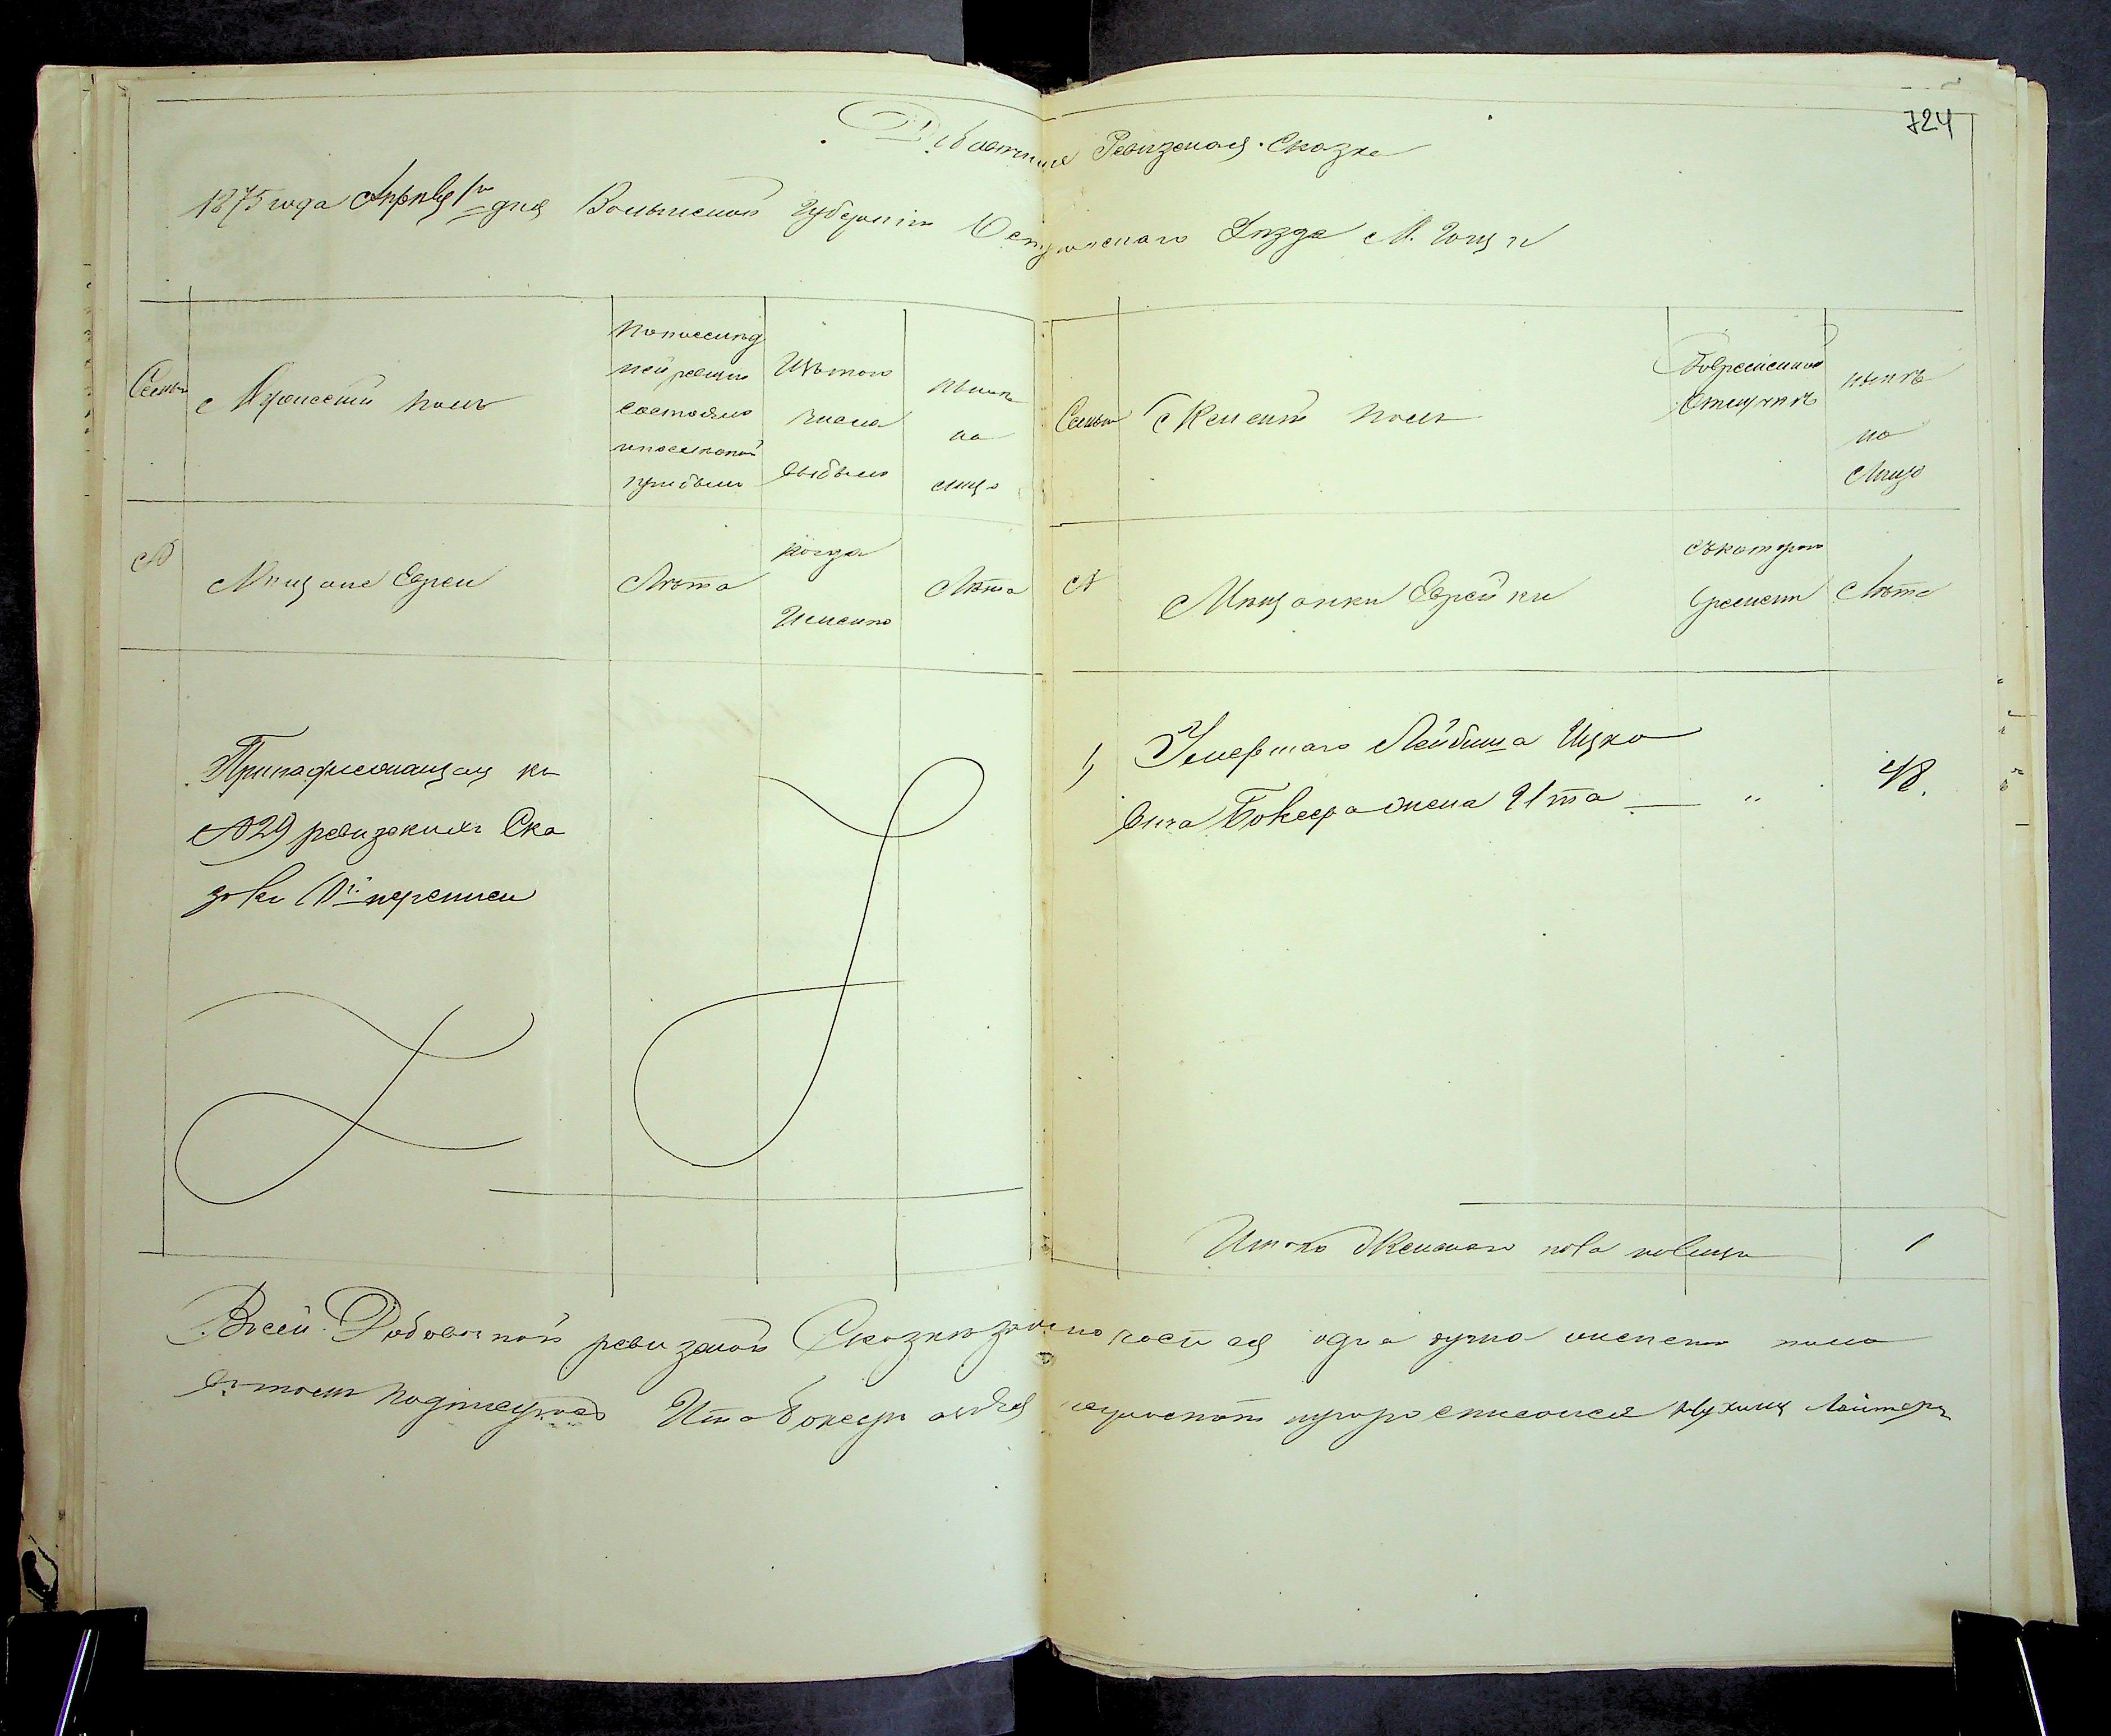 724
Добавочная Ревизская Сказка
1875 года Апреля 1го дня Волынской Губернiи Острожскаго Уѣзда М. Гощи
Семьи
Мужескiй полъ
По последней ревизiи состояло и после оной прибыло
Изъ того числа выбыло
нынѣ на лицо
Семьи
Женскiй полъ
Во временной отлучкѣ
нынѣ на лицо
№
Мѣщане Евреи
Лѣта
когда Именно
Лѣта
№
Мѣщанки Еврейки
съ котораго времени
Лѣта
Принадлежащая къ
№ 29 ревизскихъ Ска
зокъ 10й переписи
1,
Умершаго Лейбиша Ицко
вича Боксера жена Ита — " 48.
Итого Женскаго пола на лицо 1
В сей Добавочной ревизской Сказки записано
одна душа женска пола
въ томъ подписуюсь Ита Боксеръ а за нея неграмотной